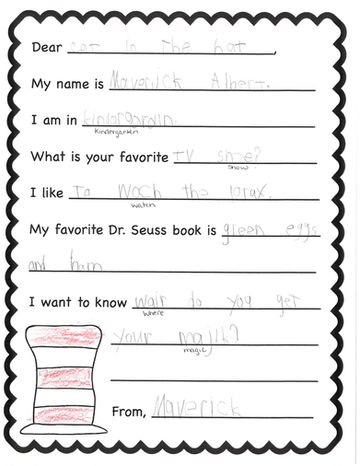 Dear cat in the hat,
My name is Maverick Albert.
I am in
kindergarten
What is your favorite TV shoe?
show
I like to woch the lorax.
watch
My favorite Dr. Seuss book is green eggs
and ham
I want to know wair do you get
where
your majik?
magic
From, Maverick